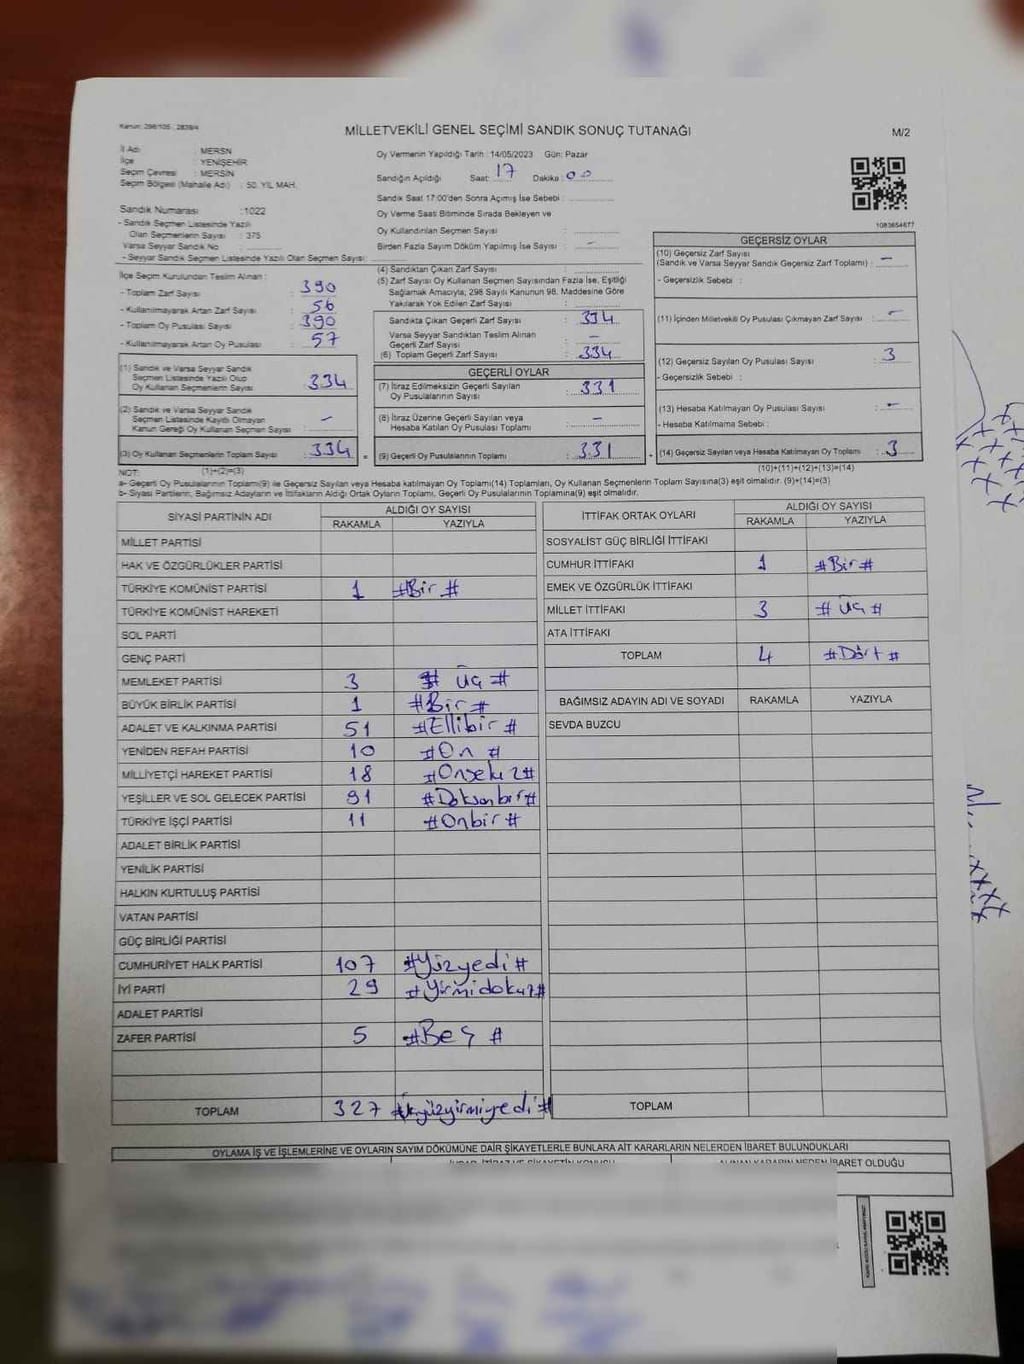 Kanun: 298/105 , 2839/4
MİLLETVEKİLİ GENEL SEÇİMİ SANDIK SONUÇ TUTANAĞI
M/2
İl Adı : MERSN
İlçe : YENİŞEHİR
Seçim Çevresi : MERSİN
Seçim Bölgesi (Mahalle Adı) : 50. YIL MAH.
Sandık Numarası :1022
- Sandık Seçmen Listesinde Yazılı
Olan Seçmenlerin Sayısı : 375
Varsa Seyyar Sandık No :
- Seyyar Sandık Seçmen Listesinde Yazılı Olan Seçmen Sayısı :
Oy Vermenin Yapıldığı Tarih : 14/05/2023 Gün: Pazar
Sandığın Açıldığı Saat: 17 Dakika : 00
Sandık Saat 17:00'den Sonra Açılmış İse Sebebi :
Oy Verme Saati Bitiminde Sırada Bekleyen ve
Oy Kullandırılan Seçmen Sayısı :
Birden Fazla Sayım Döküm Yapılmış İse Sayısı : -
1083654677
İlçe Seçim Kurulundan Teslim Alınan :
- Toplam Zarf Sayısı : 390
- Kullanılmayarak Artan Zarf Sayısı : 56
- Toplam Oy Pusulası Sayısı : 390
- Kullanılmayarak Artan Oy Pusulası : 57
(1) Sandık ve Varsa Seyyar Sandık
Seçmen Listesinde Yazılı Olup
Oy Kullanan Seçmenlerin Sayısı : 334
(2) Sandık ve Varsa Seyyar Sandık
Seçmen Listesinde Kayıtlı Olmayan
Kanun Gereği Oy Kullanan Seçmen Sayısı : -
(3) Oy Kullanan Seçmenlerin Toplam Sayısı : 334 =
(4) Sandıktan Çıkan Zarf Sayısı :
(5) Zarf Sayısı Oy Kullanan Seçmen Sayısından Fazla İse, Eşitliği
Sağlamak Amacıyla, 298 Sayılı Kanunun 98. Maddesine Göre
Yakılarak Yok Edilen Zarf Sayısı :
Sandıkta Çıkan Geçerli Zarf Sayısı : 334
Varsa Seyyar Sandıktan Teslim Alınan
Geçerli Zarf Sayısı : -
(6) Toplam Geçerli Zarf Sayısı : 334
GEÇERLİ OYLAR
(7) İtiraz Edilmeksizin Geçerli Sayılan
Oy Pusulalarının Sayısı : 331
(8) İtiraz Üzerine Geçerli Sayılan veya
Hesaba Katılan Oy Pusulası Toplamı : -
(9) Geçerli Oy Pusulalarının Toplamı : 331
GEÇERSİZ OYLAR
(10) Geçersiz Zarf Sayısı
(Sandık ve Varsa Seyyar Sandık Geçersiz Zarf Toplamı) : -
- Geçersizlik Sebebi :
(11) İçinden Milletvekili Oy Pusulası Çıkmayan Zarf Sayısı : -
(12) Geçersiz Sayılan Oy Pusulası Sayısı : 3
- Geçersizlik Sebebi :
(13) Hesaba Katılmayan Oy Pusulası Sayısı : -
- Hesaba Katılmama Sebebi :
(14) Geçersiz Sayılan veya Hesaba Katılmayan Oy Toplamı : 3
NOT: (1)+(2)=(3) (10)+(11)+(12)+(13)=(14)
a- Geçerli Oy Pusulalarının Toplamı(9) ile Geçersiz Sayılan veya Hesaba katılmayan Oy Toplamı(14) Toplamları, Oy Kullanan Seçmenlerin Toplam Sayısına(3) eşit olmalıdır. (9)+(14)=(3)
b- Siyasi Partilerin, Bağımsız Adayların ve İttifakların Aldığı Ortak Oyların Toplamı, Geçerli Oy Pusulalarının Toplamına(9) eşit olmalıdır.
SİYASİ PARTİNİN ADI ALDIĞI OY SAYISI
RAKAMLA YAZIYLA
MİLLET PARTİSİ
HAK VE ÖZGÜRLÜKLER PARTİSİ
TÜRKİYE KOMÜNİST PARTİSİ 1 #Bir #
TÜRKİYE KOMÜNİST HAREKETİ
SOL PARTİ
GENÇ PARTİ
MEMLEKET PARTİSİ 3 # üç #
BÜYÜK BİRLİK PARTİSİ 1 #Bir #
ADALET VE KALKINMA PARTİSİ 51 #Ellibir #
YENİDEN REFAH PARTİSİ 10 #On #
MİLLİYETÇİ HAREKET PARTİSİ 18 #Onsekiz#
YEŞİLLER VE SOL GELECEK PARTİSİ 91 #Doksanbir#
TÜRKİYE İŞÇİ PARTİSİ 11 #Onbir #
ADALET BİRLİK PARTİSİ
YENİLİK PARTİSİ
HALKIN KURTULUŞ PARTİSİ
VATAN PARTİSİ
GÜÇ BİRLİĞİ PARTİSİ
CUMHURİYET HALK PARTİSİ 107 #Yüzyedi #
İYİ PARTİ 29 #Yirmidokuz#
ADALET PARTİSİ
ZAFER PARTİSİ 5 #Beş #
TOPLAM 327 #üçyüzyirmiyedi #
İTTİFAK ORTAK OYLARI ALDIĞI OY SAYISI
RAKAMLA YAZIYLA
SOSYALİST GÜÇ BİRLİĞİ İTTİFAKI
CUMHUR İTTİFAKI 1 #Bir #
EMEK VE ÖZGÜRLÜK İTTİFAKI
MİLLET İTTİFAKI 3 # üç #
ATA İTTİFAKI
TOPLAM 4 #Dört #
BAĞIMSIZ ADAYIN ADI VE SOYADI RAKAMLA YAZIYLA
SEVDA BUZCU
TOPLAM
OYLAMA İŞ VE İŞLEMLERİNE VE OYLARIN SAYIM DÖKÜMÜNE DAİR ŞİKAYETLERLE BUNLARA AİT KARARLARIN NELERDEN İBARET BULUNDUKLARI
ALINAN KARARIN NEDEN İBARET OLDUĞU